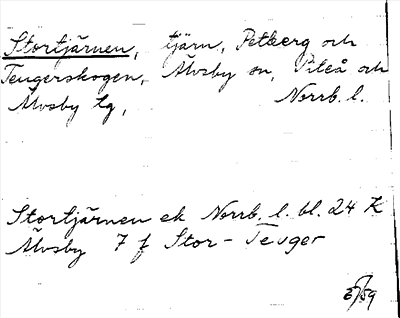 Stortjärnen, tjärn, Petberg och
Teugerskogen, Älvsby sn, Piteå och
Älvsby tg, Norrb. l.
Stortjärnen ek Norrb. l. bl. 24 K
Älvsby 7 f Stor-Teuger
/59